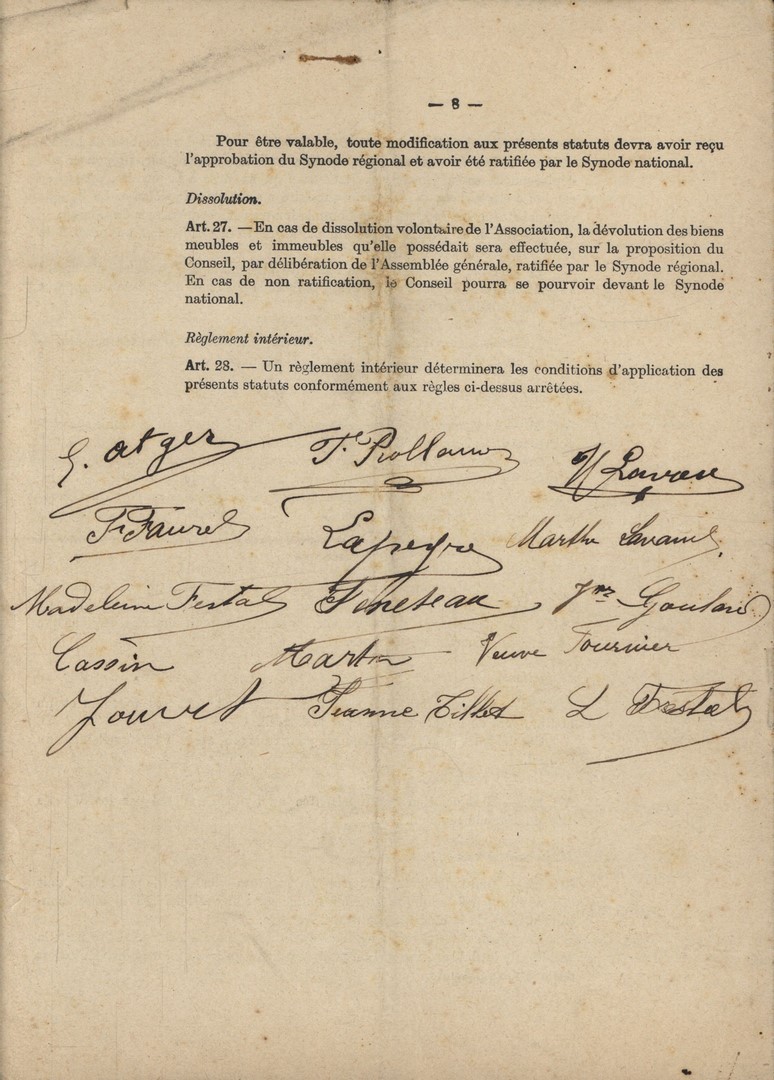 — 8 —
Pour être valable, toute modification aux présents statuts devra avoir reçu
l'approbation du Synode régional et avoir été ratifiée par le Synode national.
Dissolution.
Art. 27. — En cas de dissolution volontaire de l'Association, la dévolution des biens
meubles et immeubles qu'elle possédait sera effectuée, sur la proposition du
Conseil, par délibération de l'Assemblée générale, ratifiée par le Synode régional.
En cas de non ratification, le Conseil pourra se pourvoir devant le Synode
national.
Règlement intérieur.
Art. 28. — Un règlement intérieur déterminera les conditions d'application des
présents statuts conformément aux règles ci-dessus arrêtées.
atger
Faurel Lapeyre Marthe
Madeleine Festal Feneteau Goulard
Cassin Martin Veuve Tournier
Jouvet Jeanne Tillet L Festal